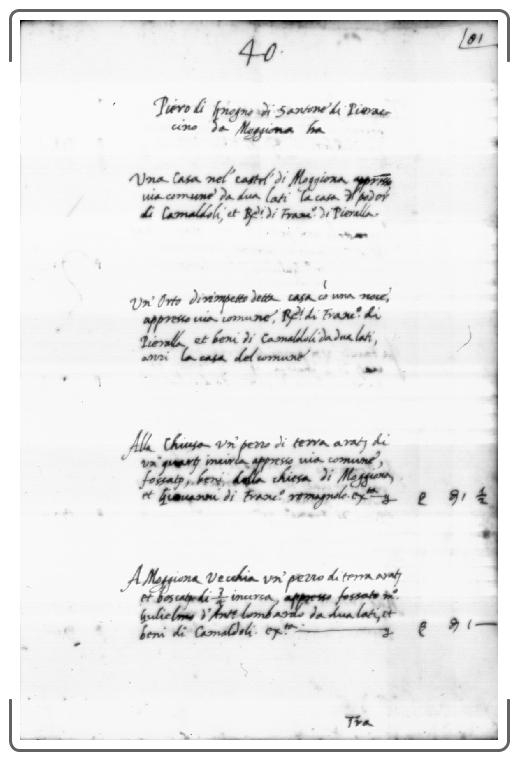 81
40.
Piero di Inogno di Santone di Pierac
cino da Moggiona ha
Una Casa nel castel di Moggiona appresso
via comune da dua lati la casa di podor
di Camaldoli, et Rede di Franco. di Pieralla
Un' Orto dirimpetto detta casa cō una noce,
appresso via comune, Rede di Franco. di
Pieralla, et beni di Camaldoli da dua lati,
anzi la casa del comune
Alla Chiusa un' pezzo di terra arata di
un quarto incirca appresso via comune,
fossato, beni della chiesa di Moggiona,
et Giovanni di Franco. romagnolo exta
A Moggiona Vecchia un' pezzo di terra arata
et boscata di incirca, appresso fossato mo.
Gulielmo d'Anto lombardo da dua lati, et
beni di Camaldoli exta
Tra